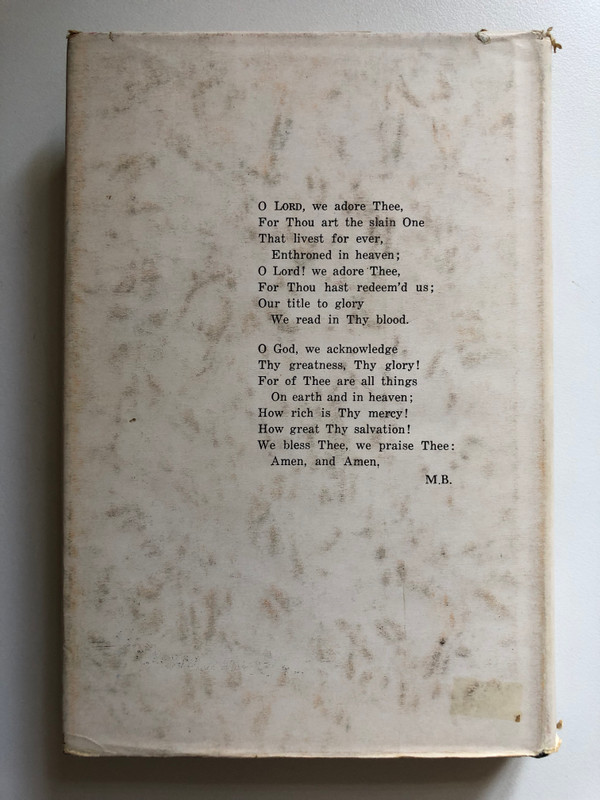 O LORD, we adore Thee,
For Thou art the slain One
That livest for ever,
Enthroned in heaven;
O Lord! we adore Thee,
For Thou hast redeem'd us;
Our title to glory
We read in Thy blood.
O God, we acknowledge
Thy greatness, Thy glory!
For of Thee are all things
On earth and in heaven;
How rich is Thy mercy!
How great Thy salvation!
We bless Thee, we praise Thee:
Amen, and Amen,
M.B.